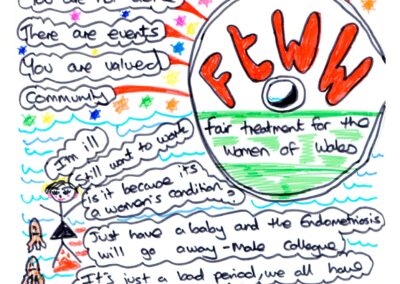 You are not alone
There are events
You are valued
Community
FTWW
Fair treatment for the
Women of Wales
I'm ill
Still want to work
Is it because it's
a women's condition?
Just have a baby and the Endometriosis
will go away - Male Collegue
It's just a bad period, we all have